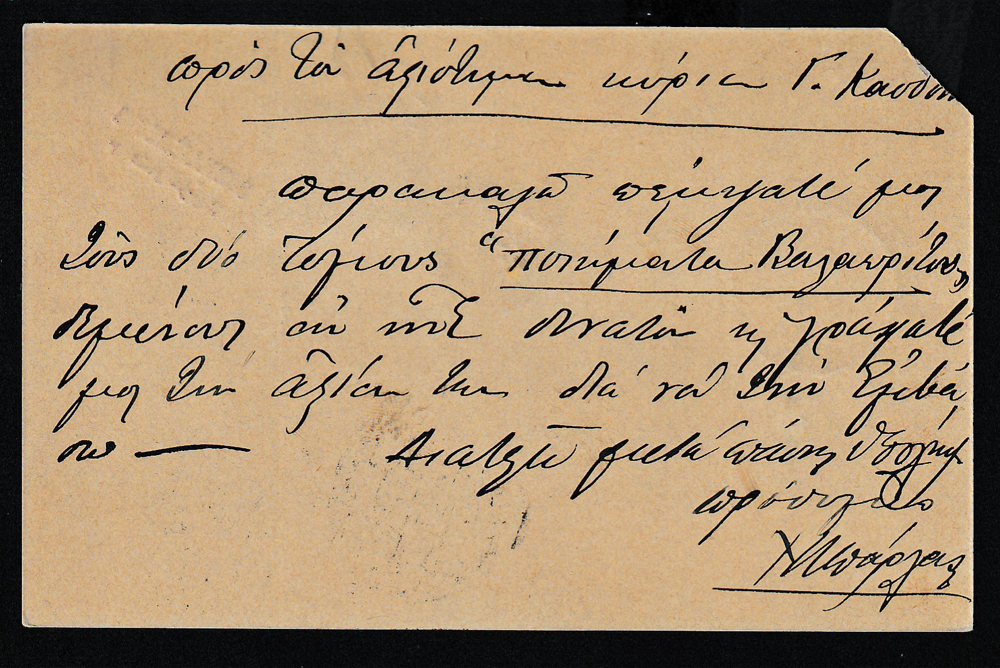 πρὸς τὸν ἀξιότιμον κύριον Γ. Κασδόν
παρακαλῶ πέμψατέ μοι
τοὺς δύο τόμους "ποιήματα Βαλαωρίτου"
δεμένους εἰ δυνατὸν κ γράψατέ
μοι τὴν ἀξίαν των διὰ νὰ τὴν ἐμβά
σω — Διατελῶ μετὰ πάσης ὑπολήψ
πρόθυμος